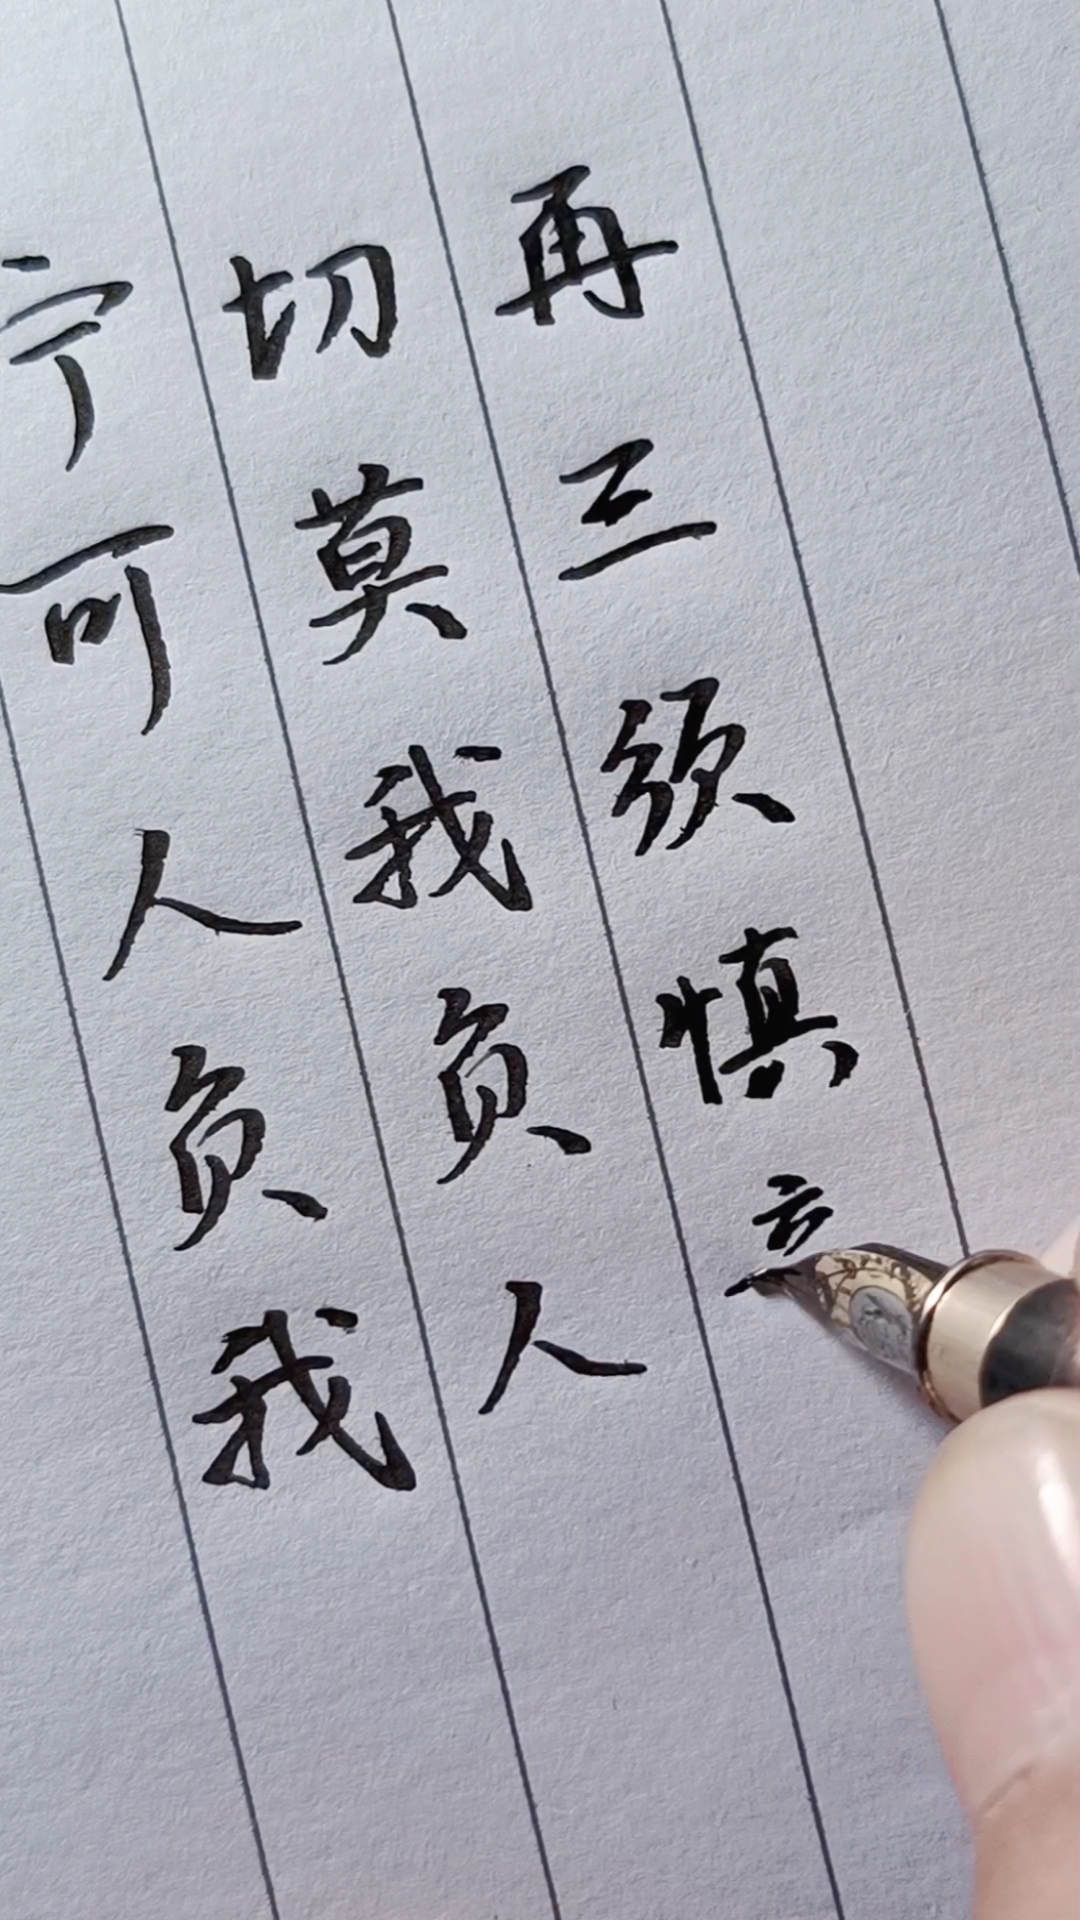 宁可人负我
切莫我负人
再三须慎